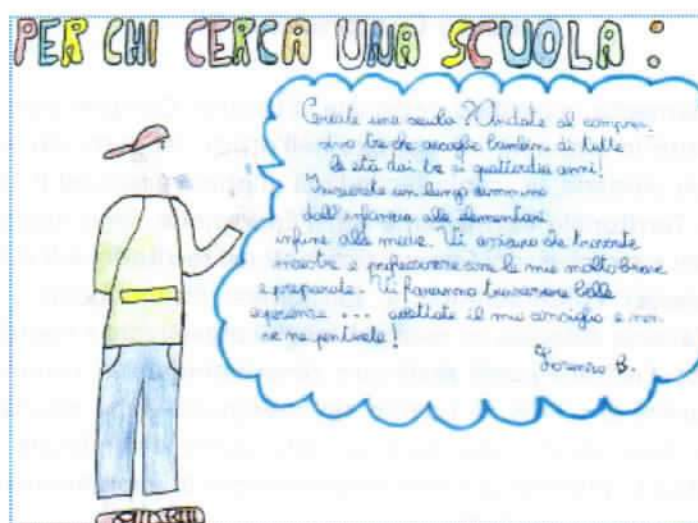 PER CHI CERCA UNA SCUOLA :
Cercate una scuola? Andate al compren_
sivo tre che accoglie bambini di tutte
le età dai tre ai quattordici anni!
Inizierete un lungo cammino
dall'infanzia alle elementari
infine alle medie. Vi assicuro che troverete
maestre e professoresse come le mie molto brave
e preparate. Vi faranno trascorrere belle
esperienze ... accettate il mio consiglio e non
ve ne pentirete!
Lorenzo B.